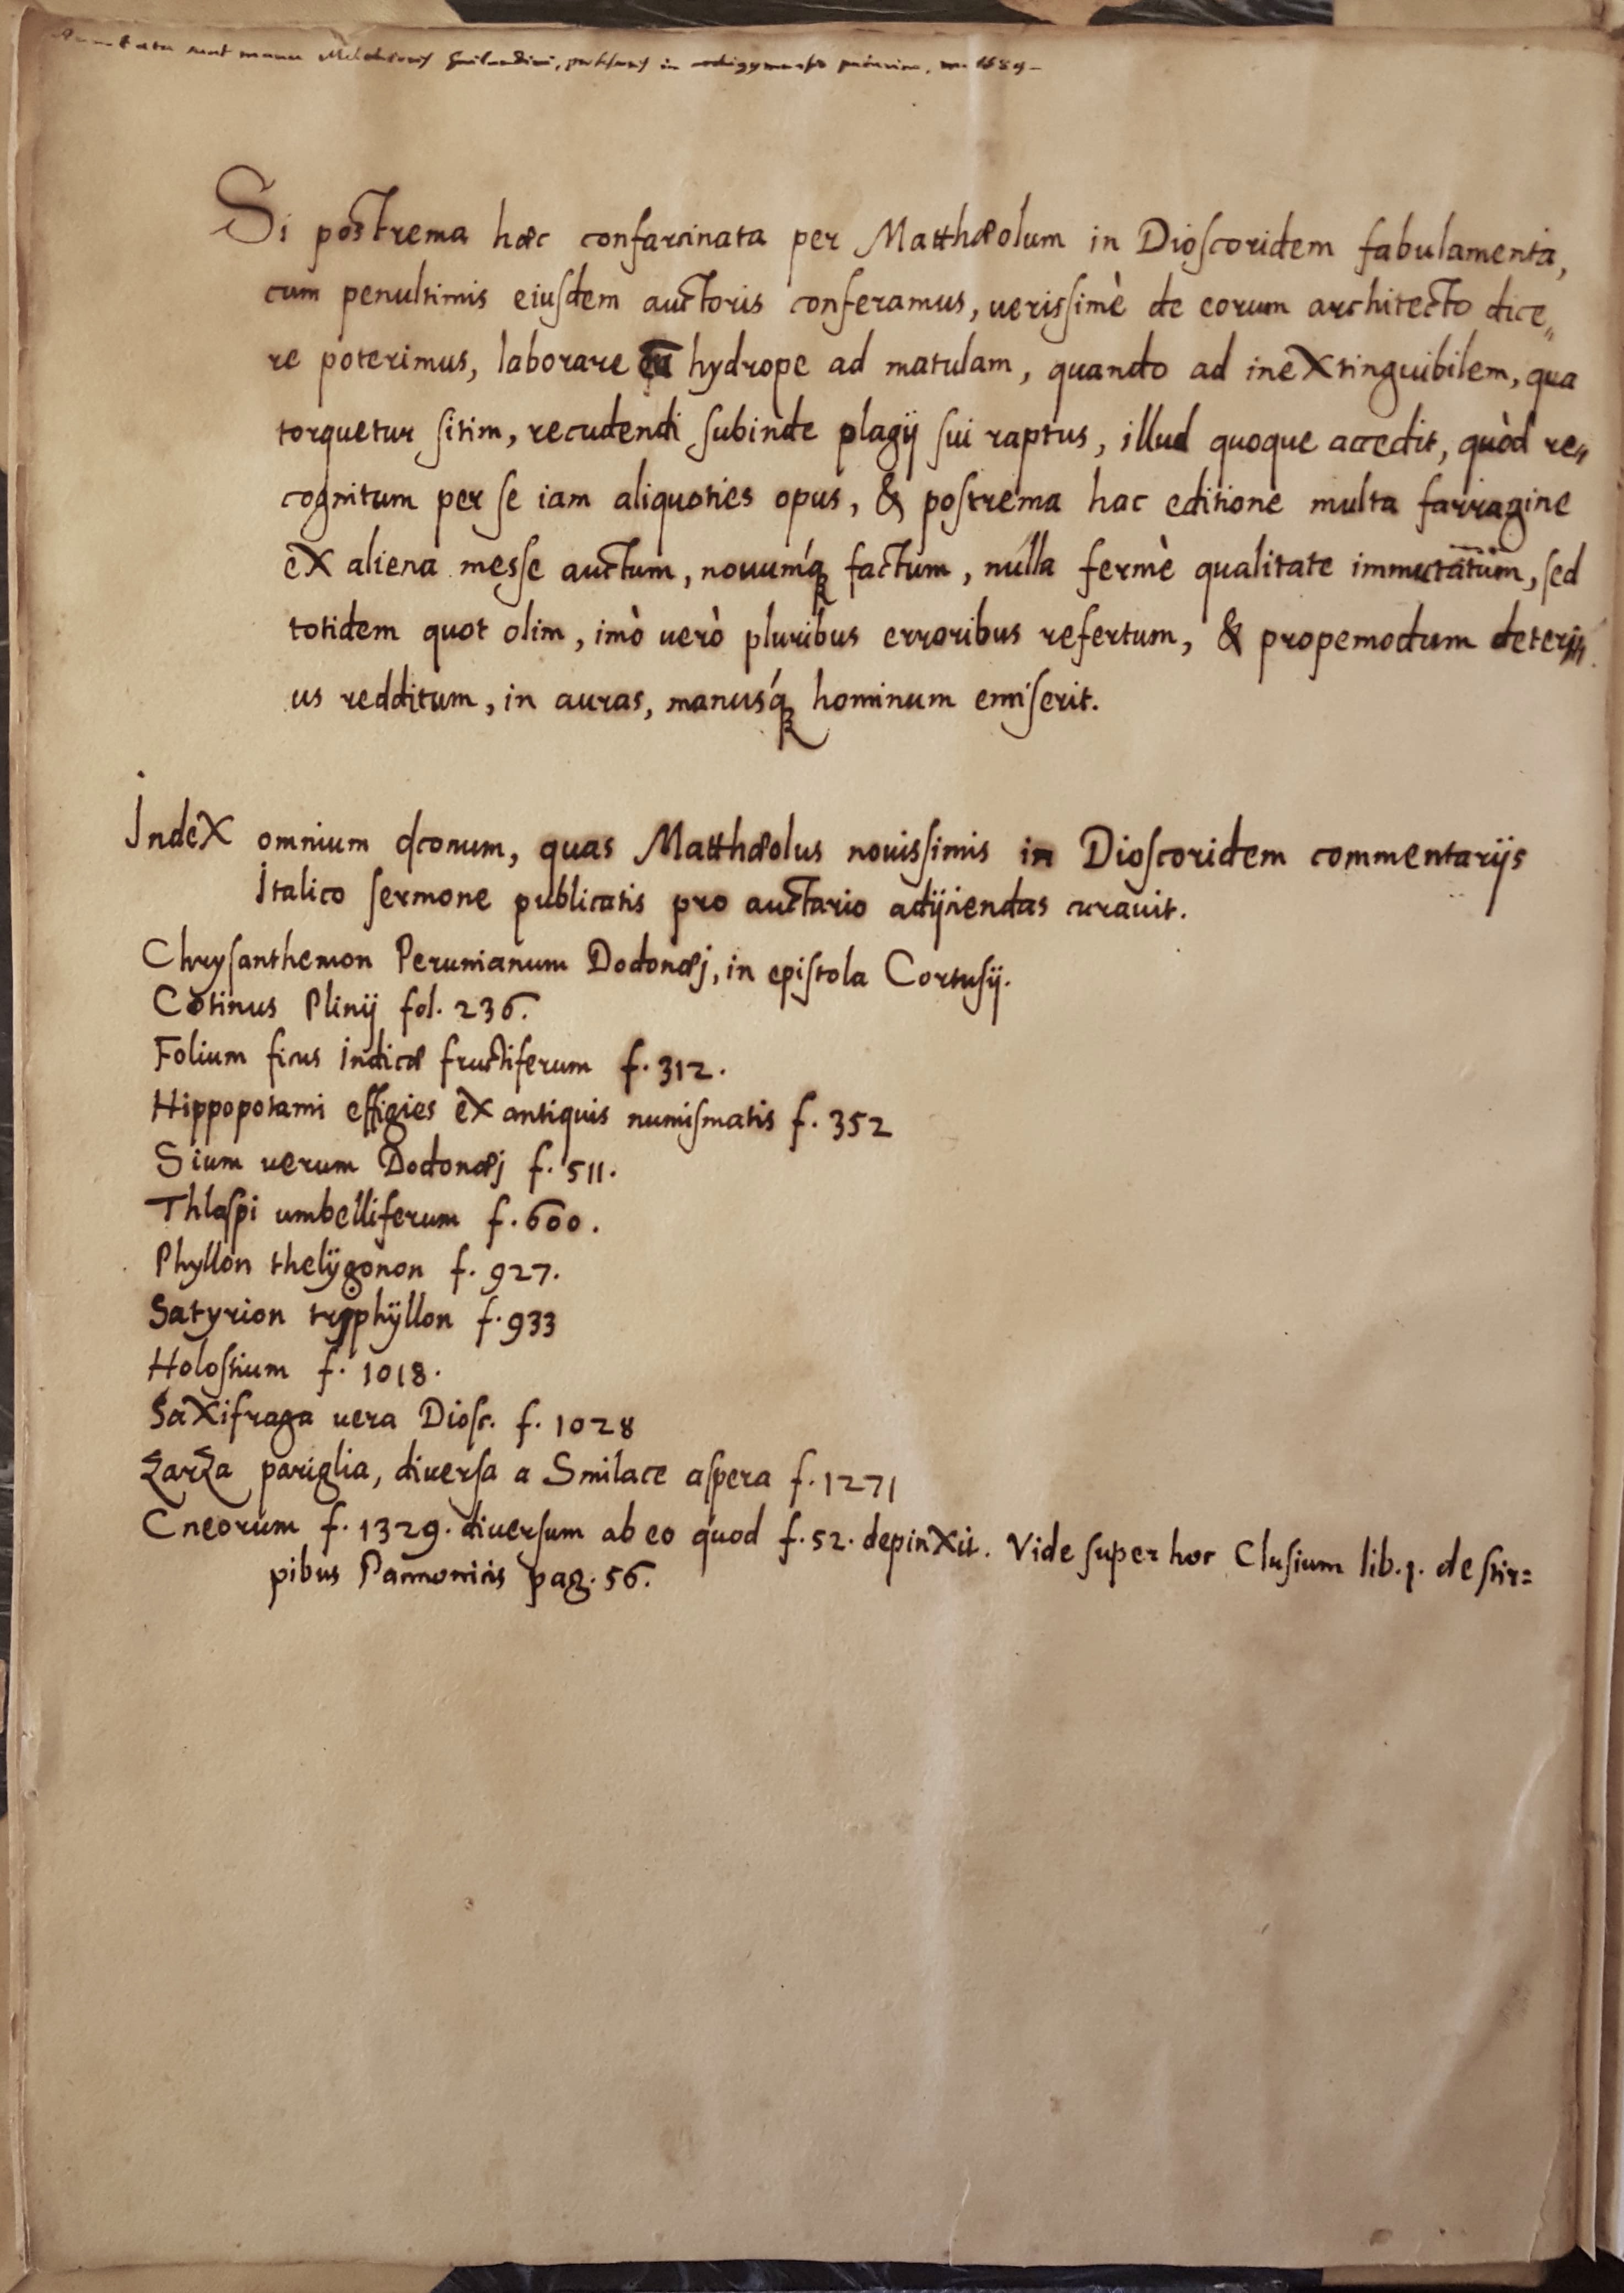 sunt manu Melchioris Guilandini, professoris in
Si postrema hæc confarcinata per Matthæolum in Dioscoridem fabulamenta,
cum penultimis eiusdem auctoris conferamus, uerissimè de eorum architecto dice„
re poterimus, laborare hydrope ad matulam, quando ad inextinguibilem, qua
torquetur sitim, recudendi subinde plagij sui raptus, illud quoque accedit, quòd re„
cognitum per se iam aliquoties opus, & postrema hac editione multa farragine
ex aliena messe auctum, nouumq́ꝫ factum, nulla fermè qualitate immutatum, sed
totidem quot olim, imò uerò pluribus erroribus refertum, & propemodum deteri„
us redditum, in auras, manusq́ꝫ hominum emiserit.
Index omnium qconum, quas Matthæolus nouissimis in Dioscoridem commentarijs
Italico sermone publicatis pro auctario adijciendas curauit.
Chrysanthemon Peruuianum Dodonæj, in epistola Cortusij.
Cotinus Plinij fol. 236.
Folium ficus indicæ fructiferum f. 312.
Hippopotami effigies ex antiquis numismatis f. 352
Sium uerum Dodonæj f. 511.
Thlaspi umbelliferum f. 600.
Phyllon thelÿgonon f. 927.
Satyrion triphÿllon f. 933
Holostium f. 1018.
Saxifraga uera Diosc. f. 1028
ZarZa pariglia, diuersa a Smilace aspera f. 1271
Cneorum f. 1329. diuersum ab eo quod f. 52. depinxit. Vide super hoc Clusium lib. 1. de stir=
pibus Pannonicis pag. 56.